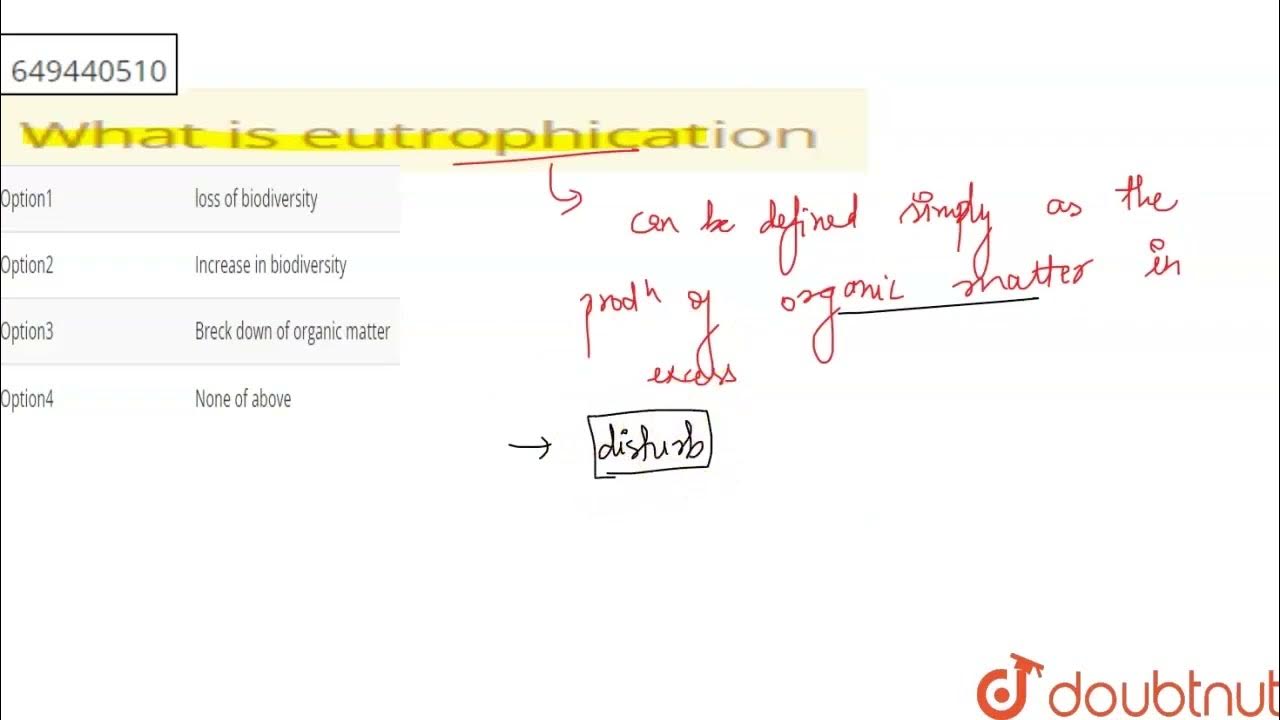 649440510
What is eutrophication
Option1 loss of biodiversity
Option2 Increase in biodiversity
Option3 Breck down of organic matter
Option4 None of above
can be defined simply as the
prodⁿ of organic matter in
excess
→ disturb
doubtnut